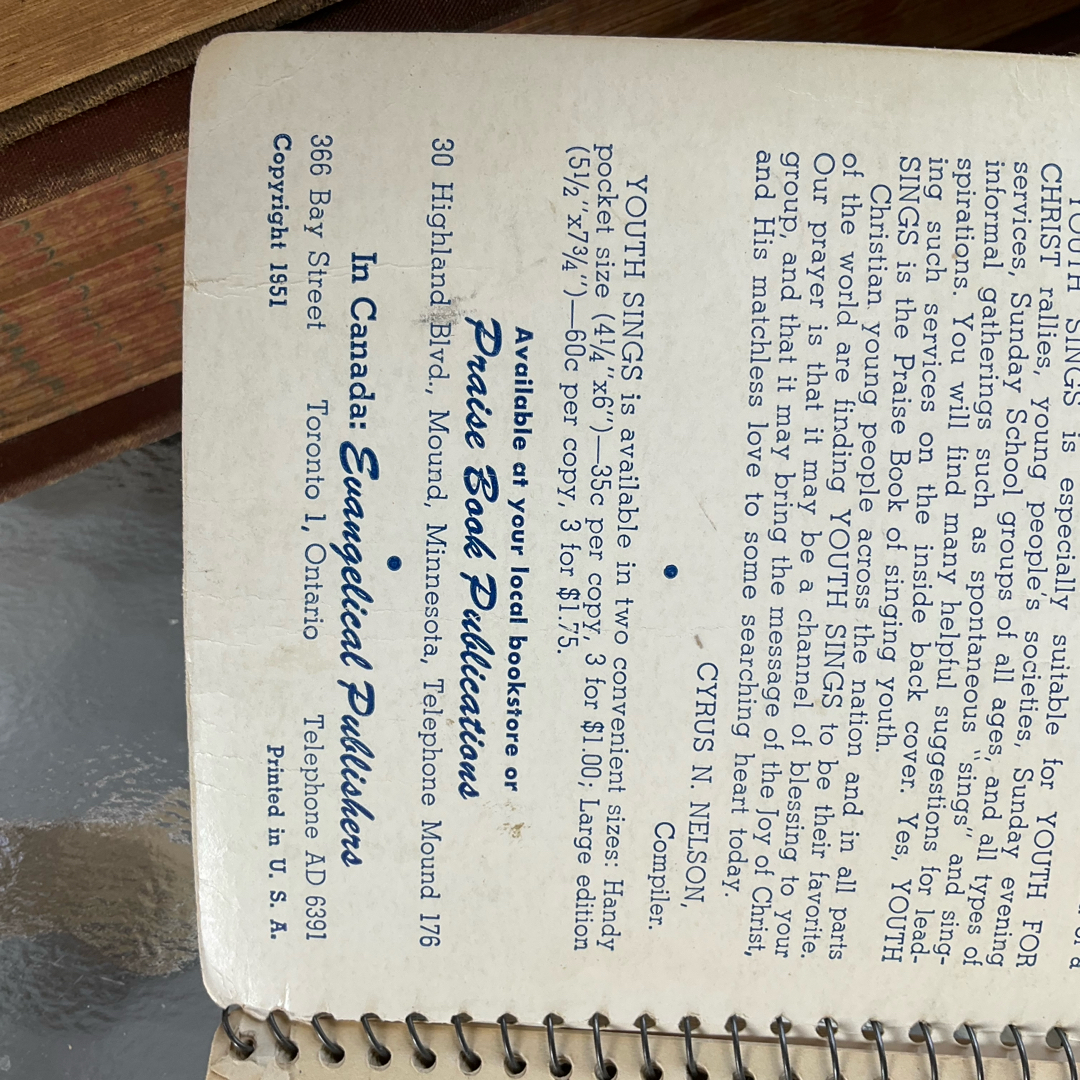 YOUTH SINGS is especially suitable for YOUTH FOR
CHRIST rallies, young people's societies, Sunday evening
services, Sunday School groups of all ages, and all types of
informal gatherings such as spontaneous "sings" and sing-
spirations. You will find many helpful suggestions for lead-
ing such services on the inside back cover. Yes, YOUTH
SINGS is the Praise Book of singing youth.
Christian young people across the nation and in all parts
of the world are finding YOUTH SINGS to be their favorite.
Our prayer is that it may be a channel of blessing to your
group, and that it may bring the message of the Joy of Christ,
and His matchless love to some searching heart today.
CYRUS N. NELSON,
Compiler.
YOUTH SINGS is available in two convenient sizes: Handy
pocket size (4¼"x6")—35c per copy, 3 for $1.00; Large edition
(5½"x7¾")—60c per copy, 3 for $1.75.
Available at your local bookstore or
Praise Book Publications
30 Highland Blvd., Mound, Minnesota, Telephone Mound 176
In Canada: Evangelical Publishers
366 Bay Street Toronto 1, Ontario Telephone AD 6391
Copyright 1951 Printed in U. S. A.